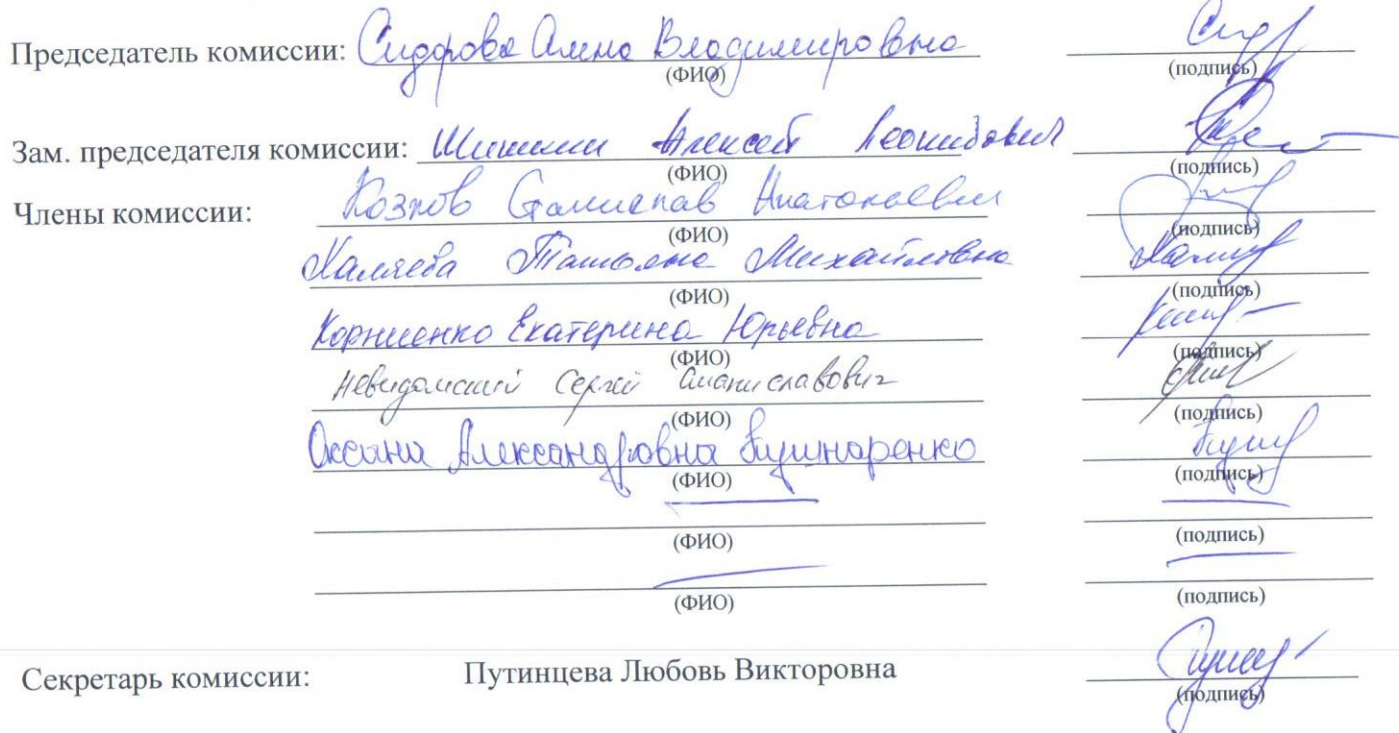 Председатель комиссии: Сидорова Алена Владимировна
(ФИО) (подпись)
Зам. председателя комиссии: Шишкин Алексей Леонидович
(ФИО) (подпись)
Члены комиссии: Козлов Станислав Анатольевич
(ФИО) (подпись)
Халяева Татьяна Михайловна
(ФИО) (подпись)
Корниенко Екатерина Юрьевна
(ФИО) (подпись)
Невидомский Сергей Станиславович
(ФИО) (подпись)
Оксана Александровна Кушнаренко
(ФИО) (подпись)
(ФИО) (подпись)
(ФИО) (подпись)
Секретарь комиссии: Путинцева Любовь Викторовна
(подпись)